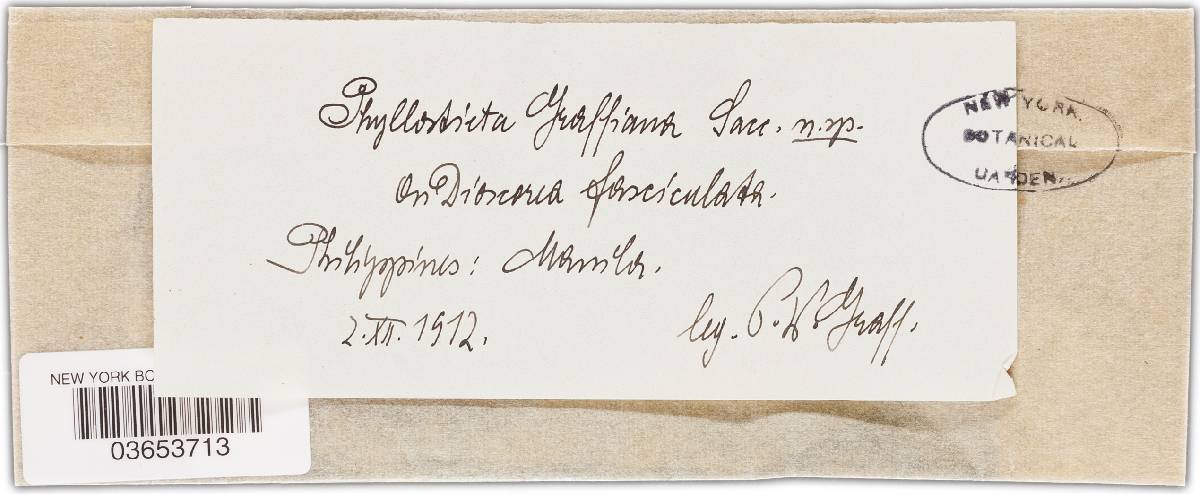 Phyllosticta Graffiana Sacc. n. sp.
on Dioscorea fasciculata.
Philippines: Manila.
2. XII. 1912.
leg. P. W. Graff.
NEW YORK
BOTANICAL
GARDEN.
NEW YORK BO
03653713